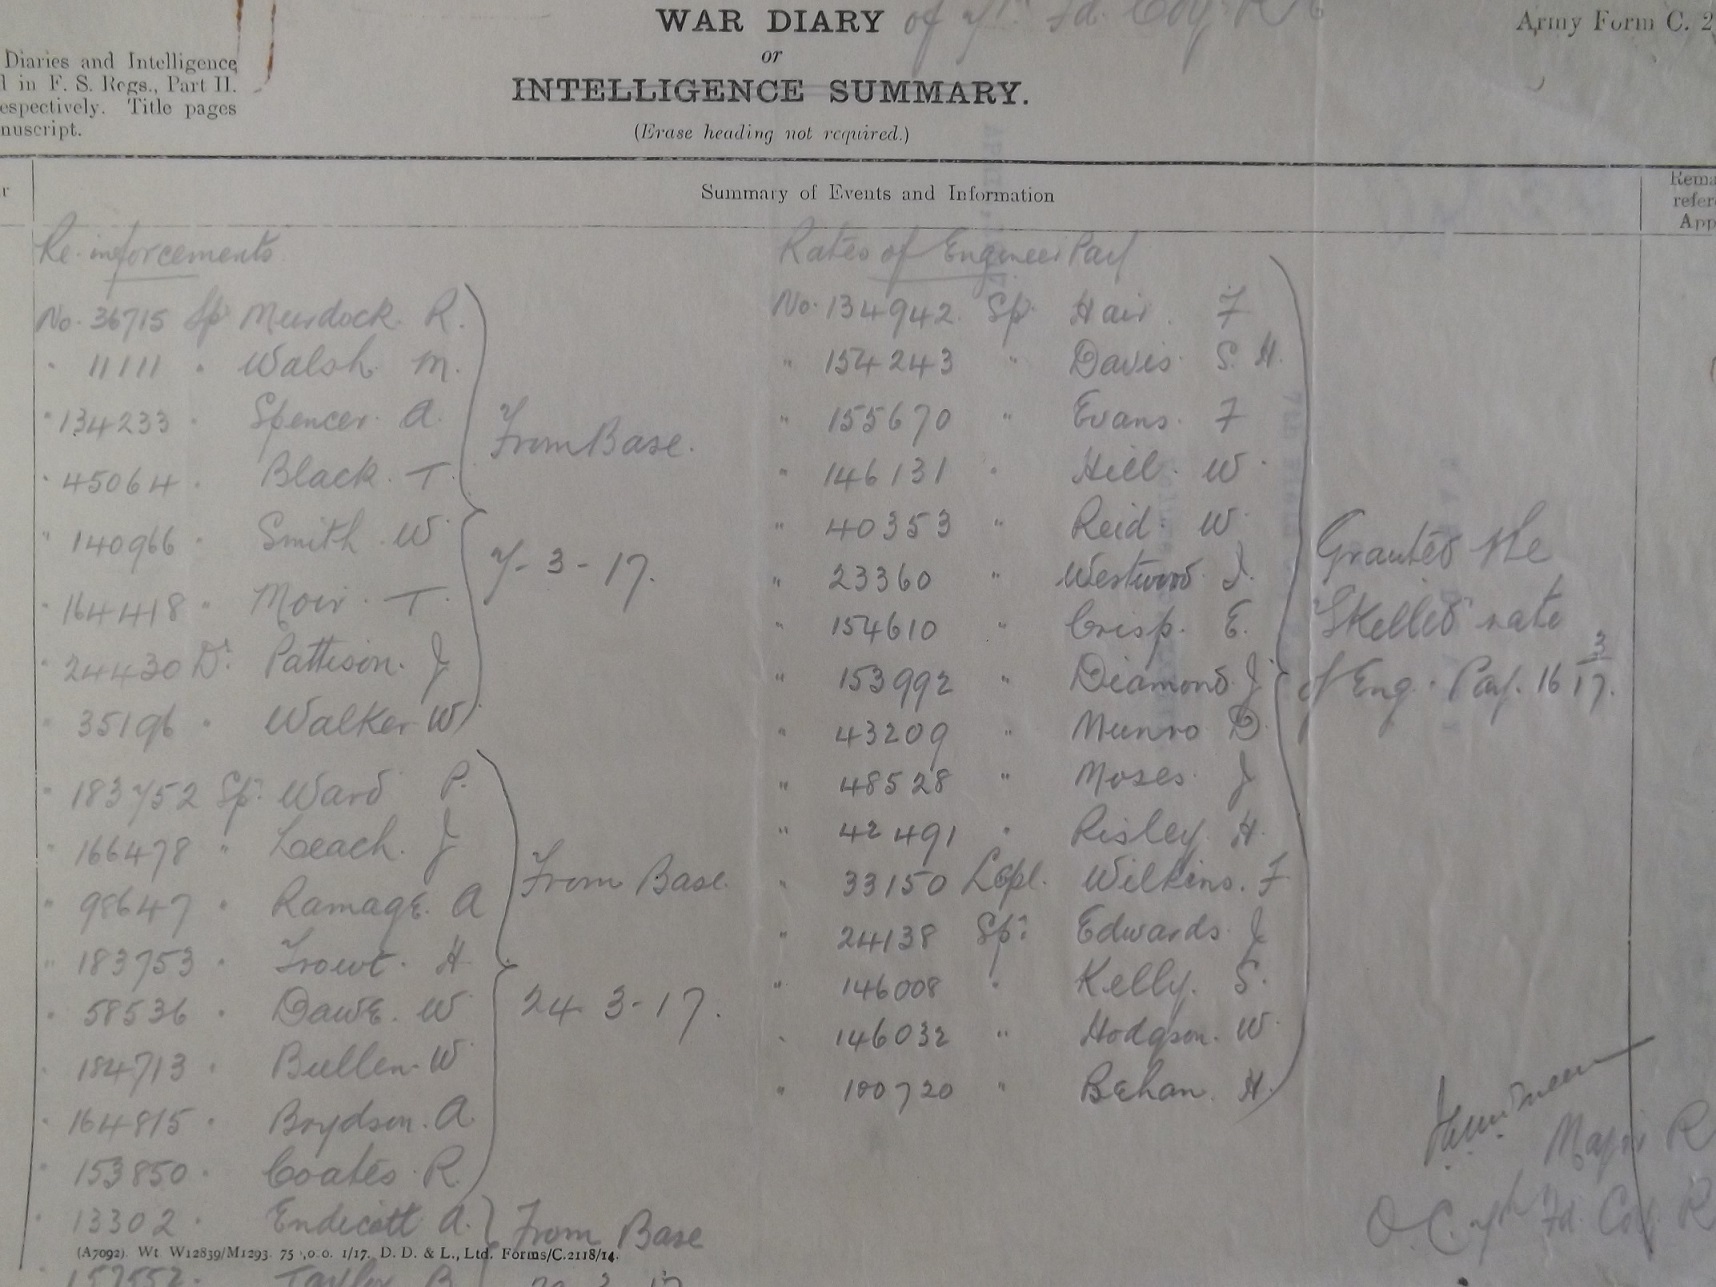 WAR DIARY of 7th Fd. Coy. R E
Army Form C. 2
or
INTELLIGENCE SUMMARY.
(Erase heading not required.)
Diaries and Intelligence
d in F. S. Regs., Part II.
espectively. Title pages
nuscript.
r
Summary of Events and Information
Rema
refer
App
Re-inforcements
No. 36715 Spr Murdock. R.
" 11111 " Walsh. M.
" 134233 " Spencer. A.
" 45064 " Black. T.
" 140966 " Smith. W.
" 164418 " Moir. T.
" 24430 Dr. Pattison. J
" 35196 " Walker W.
From Base.
7-3-17.
" 183752 Spr. Ward P.
" 166478 " Leach. J
" 98647 " Ramage. A
" 183753 " Trowt. H.
" 58536 " Dawe. W.
" 184713 " Bullen. W
" 164815 " Brydson. A.
" 153850 " Coates. R.
From Base.
24-3-17.
" 13302 " Endicott A.
From Base
(A7092). Wt. W12839/M1293. 75 ,0.0. 1/17. D. D. & L., Ltd. Forms/C.2118/14.
Rates of Engineer Pay
No. 134942 Spr. Hair. F
" 154243 " Davis. S. H.
" 155670 " Evans. F
" 146131 " Hill. W.
" 40353 " Reid. W.
" 23360 " Westwood. J.
" 154610 " Crisp. E.
" 153992 " Diamond. J
" 43209 " Munro D.
" 48528 " Moses. J
" 42491 " Risley. H.
" 33150 Lcpl. Wilkins. F
" 24138 Spr. Edwards J
" 146008 " Kelly. S.
" 146032 " Hodgson. W.
" 100720 " Behan. H.
Granted the
"Skilled" rate
of Eng. Pay. 16 3/17.
Major R
O.C. 7th Fd. Coy R